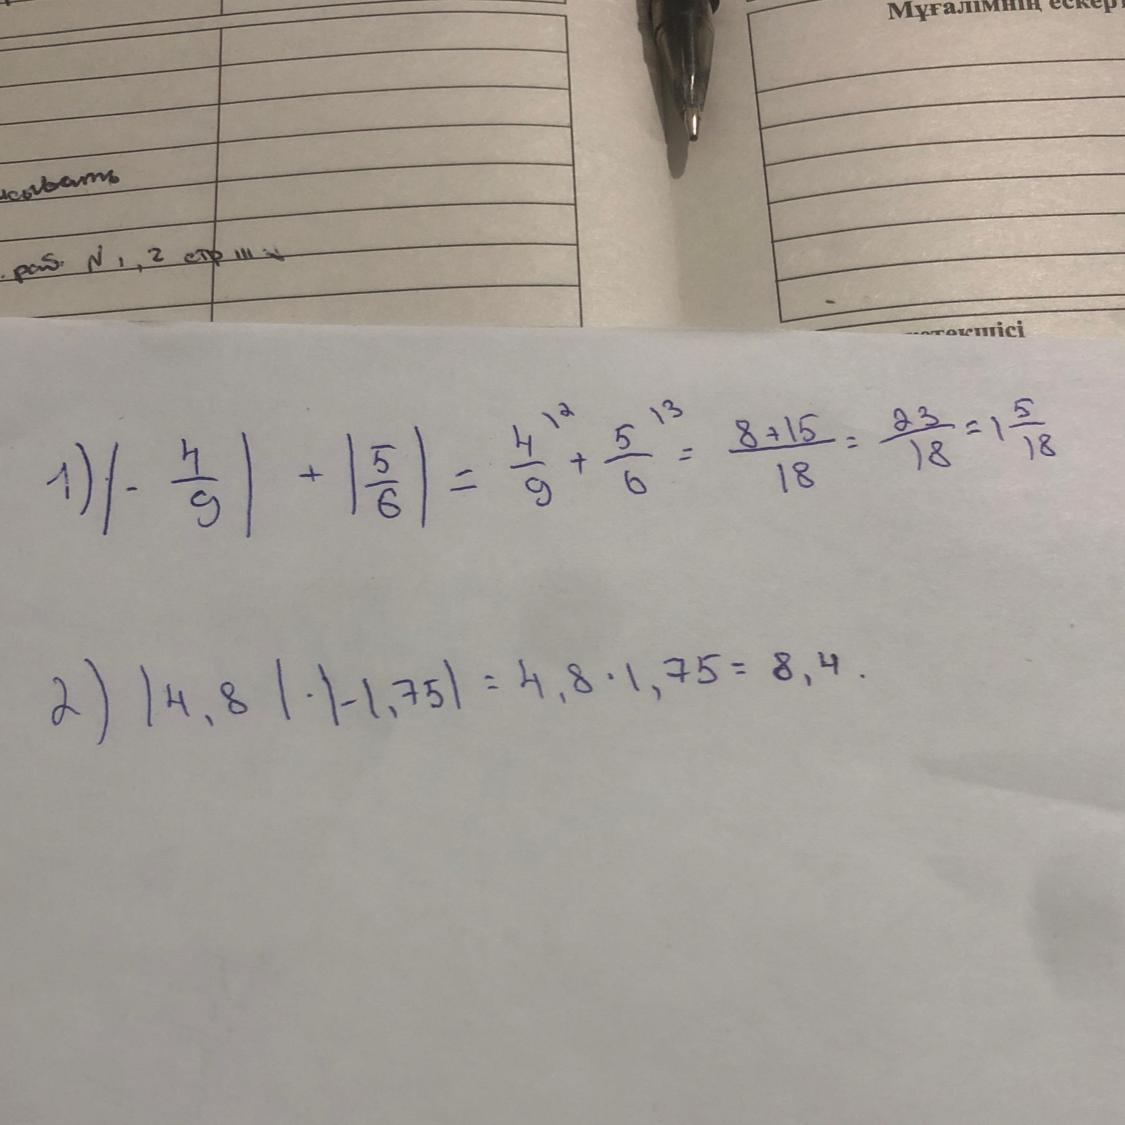 Мұғалімнің ескер
раб. N 1, 2 стр
1) |- 4/9| + |5/6| = 4/9 \2 + 5/6 \3 = 8+15/18 = 23/18 = 1 5/18
2) |4,8|·|-1,75| = 4,8·1,75 = 8,4.